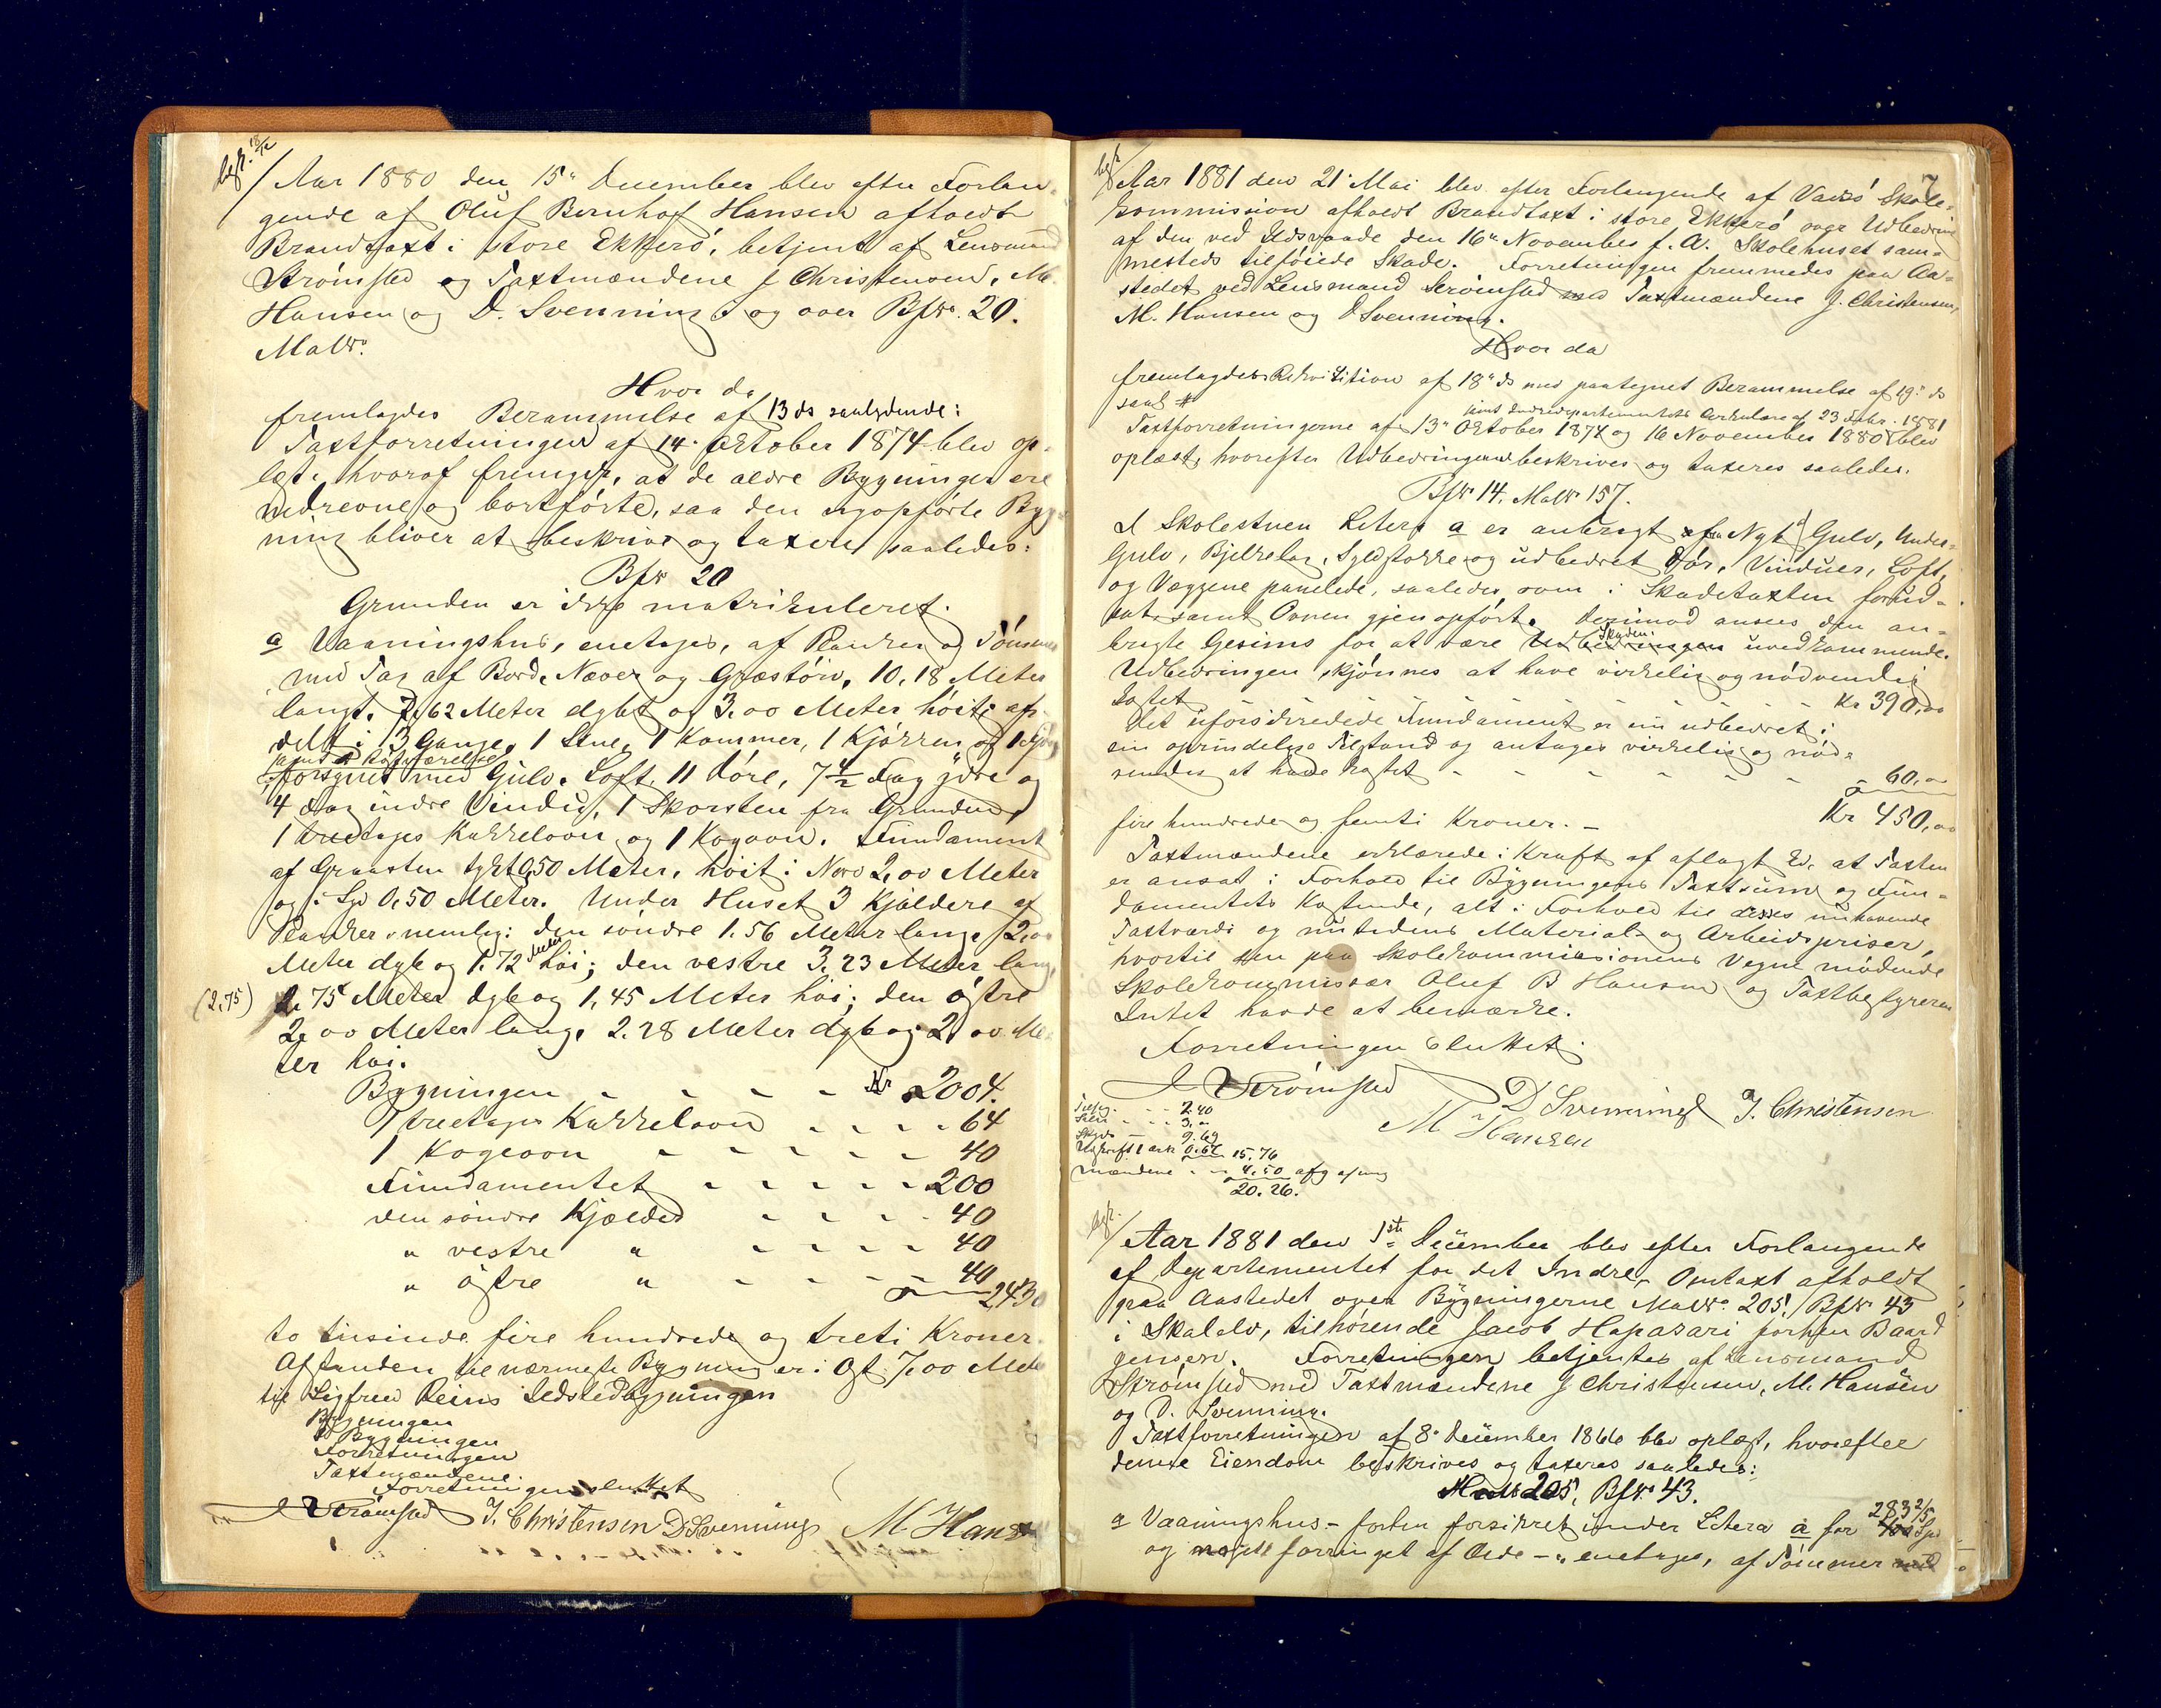 besk. 18/12
Aar 1880 den 15de December blev efter Forlan-
gende af Oluf Bernhof Hansen afholdt
Brandtaxt i store Ekkerö, betjent af Lensmand
Strömsted og Taxtmændene J Christensen, M.
Hansen og D. Svenning og over Bfno. 20.
Matno.
Hvor da
fremlagdes Berammelse af 13 ds saalydende:
Taxtforretningen af 14. Oktober 1874 blev op-
læst, hvoraf fremgik, at de ældre Bygninger ere
nedrevne og bortförte, saa den nyopförte Byg-
ning bliver at beskrive og taxere saaledes:
Bfno 20
Grunden er ikke matrikuleret.
a Vaaningshus, enetages, af Planker og Tömmer
med Tag af Bord, Næver og Græstörv, 10,18 Meter
langt, 7,62 Meter dybt og 3,00 Meter höit; af-
delt i 3 Gange, 1 Stue, 1 Kammer, 1 Kjökken og 1
forsynet med Gulv, Loft, 11 Döre, 7 1/2 Fag ydre og
4 Fag indre Vindu, 1 Skorsten fra Grunden,
1 treetages Kakkelovn og 1 Kogovn. Fundament
af Graasten tykt 0,50 Meter, höit i Nord 2,00 Meter
og i Syd 0,50 Meter. Under Huset 3 Kjældere af
Planker, nemlig: den söndre 1.56 Meter lang, 2,00
Meter dyb og 1.72 Meter höi; den vestre 3,23 Meter lang,
(2,75) 2,75 Meter dyb og 1,45 Meter höi; den östre
2,00 Meter lang, 2.28 Meter dyb og 2,00 Me-
ter höi.
Bygningen - - - - Kr 2004.
1 treetages Kakkelovn - - - - 64
1 Kogeovn - - - - - 40
Fundamentet - - - - - 200
den söndre Kjælder - - - - 40
" vestre " - - - - 40
" östre " - - - - 40
2430
to tusinde fire hundrede og treti Kroner.
Afstanden til nærmeste Bygning er i Öst 7,00 Meter
til Sigfred Reins Ildstedbygningen
Bygningen
Bygningen
Forretningen
Taxtmændene
Forretningen sluttet
Strömsted J. Christensen D Svenning M Hansen
7
besk
Aar 1881 den 21' Mai blev efter Forlangende af Vadsö Skole-
kommission afholdt Brandtaxt i store Ekkerö over Udbedring
af den ved Ildsvaade den 16de November f. A. Skolehuset sam-
mesteds tilföiede Skade. Forretningen fremmedes paa Aa-
stedet ved Lensmand Strömsted med Taxtmændene J. Christensen,
M. Hansen og D Svenning.
Hvor da
fremlagdes Rekvisition af 18de ds med paategnet Berammelse af 19de ds
samt Indredepartementets Cirkulære af 23 Febr. 1881
Taxtforretningerne af 13de Oktober 1874 og 16 November 1880 blev
oplæst, hvorefter Udbedringerne beskrives og taxeres saaledes.
Bfno 14. Matno 157.
I Skolestuen Litera a er anbragt Nyt Gulv, Under-
Gulv, Bjelkelag, Syldstokke og udbedret Dör, Vinduer, Loft,
og Væggene panelede, saaledes som i Skadetaxten forud-
sat, samt Ovnen gjenopfört. Derimod ansees den an-
bragte Gesims for at være Udbedringen Skaden. uvedkommende.
Udbedringen skjönnes at have virkelig og nödvendig
kostet - - - - - - Kr 390,00
Det uforsikrede Fundament er nu udbedret i
sin oprindelige Tilstand og antages virkelig og nöd-
vendig at have kostet - - - - - - 60,00
Kr 450,00
fire hundrede og femti Kroner. -
Taxtmændene erklærede i Kraft af aflagt Ed, at Taxten
er ansat i Forhold til Bygningens Taxtsum og Fun-
damentets Kostende, alt i Forhold til disses nuhavende
Taxtværdi og nutidens Material- og Arbeidspriser,
hvortil den paa Skolekommissionens Vegne mödende
Skolekommissær Oluf B Hansen og Taxtbestyreren
Intet havde at bemærke.
Forretningen sluttet.
Strömsted D Svenning J. Christensen
M Hansen
- - 2.40
- - 3,00
Skyds - 9.69
Udskrift 1 ark 0.67 15.76
Mændene - - 4.50
20.26.
besk.
Aar 1881 den 1ste December blev efter Forlangende
af Departementet for det Indre, Omtaxt afholdt
paa Aastedet over Bygningerne Matno. 205. Bfno 43
i Skalelv, tilhörende Jacob Hapasari forhen Baard
Jensen. Forretningen betjentes af Lensmand
Strömsted med Taxtmændene J Christensen, M. Hansen
og D. Svenning.
Taxtforretningen af 8de December 1866 blev oplæst, hvorefter
denne Eiendom beskrives og taxeres saaledes:
Matno 205, Bfno 43.
a Vaaningshus - forhen forsikret under Litera a for 283 2/5 Spd
og forringet af Ælde - enetages, af Tömmer med